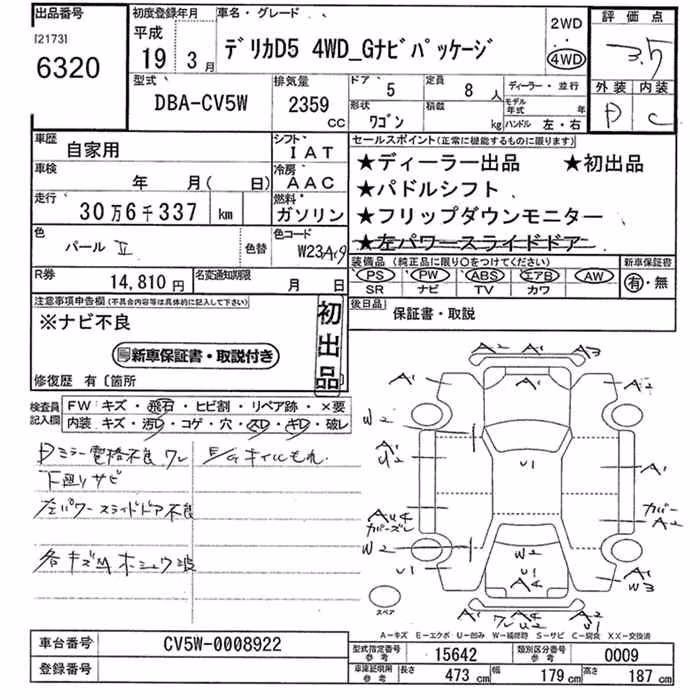 出品番号 初度登録年月 車名・グレード 2WD 評価点
[2173] 平成
6320 19 3月 デリカD5 4WD_Gナビパッケージ 4WD 3.5
型式 排気量 ドア 5 定員 8人 ディーラー・並行 外装 内装
DBA-CV5W 2359 CC 形状 ワゴン 積載 kg モデル年式 年 ハンドル 左・右 D C
車歴 自家用 シフト IAT セールスポイント(正常に機能するものに限ります)
車検 年 月( 日) 冷房 AAC ★ディーラー出品 ★初出品
走行 30万6千337 km 燃料 ガソリン ★パドルシフト
★フリップダウンモニター
色 パール II 色替 色コード W23A19 ★左パワースライドドア
装備品 (純正品に限り○をつけてください) 新車保証書
R券 14,810円 名変通知期限 月 日 PS PW ABS エアB AW 有・無
SR ナビ TV カワ
注意事項申告欄(不具合内容等は具体的に記入して下さい) 初出品 後日品 保証書・取説
※ナビ不良
新車保証書・取説付き
修復歴 有 〔箇所
検査員記入欄 FW キズ・飛石・ヒビ割・リペア跡・×要
内装 キズ・汚D・コゲ・穴・スD・キD・破レ
Dミラー電格不良 ワレ E/Gオイルもれ
下廻りサビ
左パワースライドドア不良
各キズM
A1 A1 A1 A3
A1 A2
W2
A1 U2 U1 A1
AU4 カバーズレ カバー A2
W2 W2
U1 U1 A4 A1 W3
A1 ワレ A4 U2 A2 U1
スペア
A-キズ E-エクボ U-凹み W-補修跡 S-サビ C-腐食 XX-交換済
車台番号 CV5W-0008922
登録番号
型式指定番号 参考 15642 類別区分番号 参考 0009
車庫証明用 参考 長さ 473cm 幅 179cm 高さ 187cm